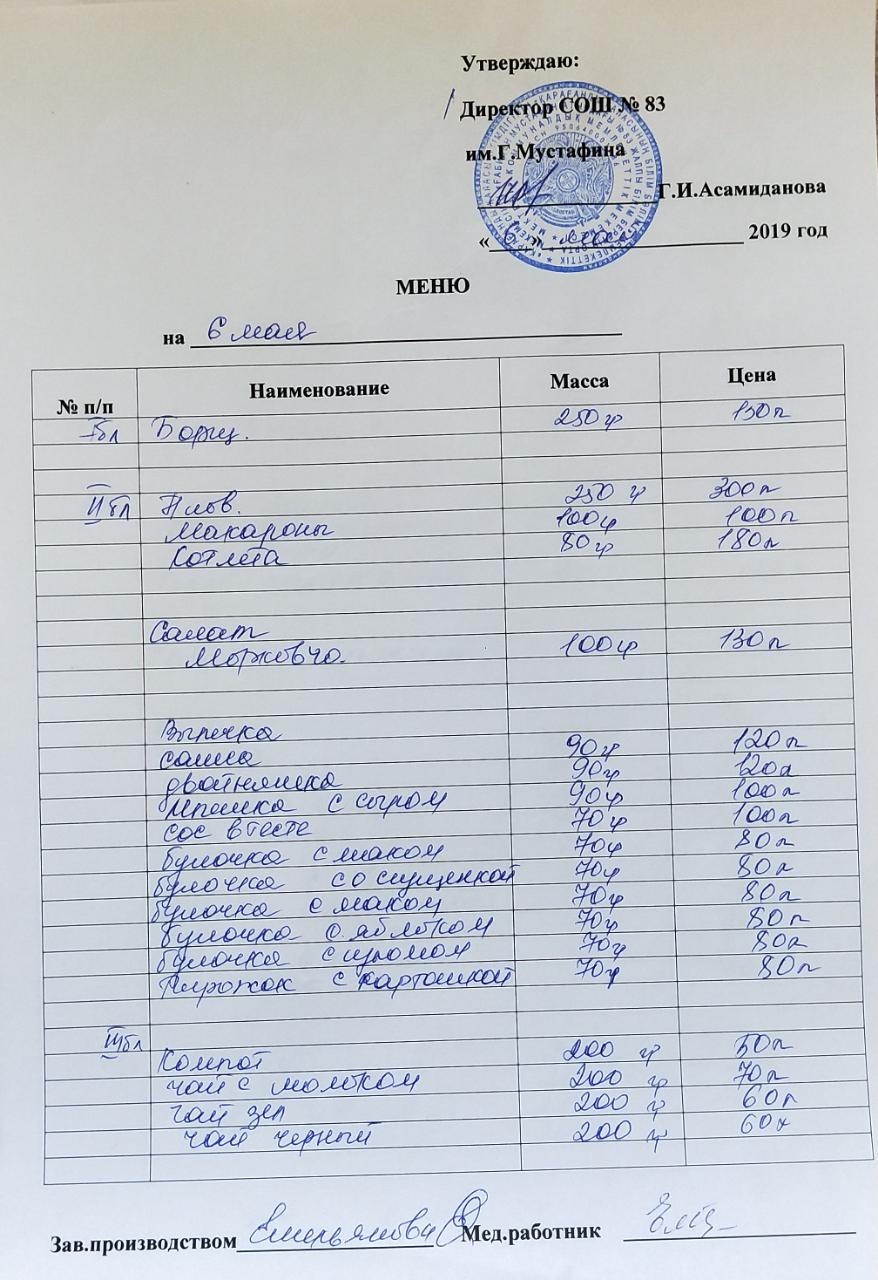 Утверждаю:
Директор СОШ № 83
им.Г.Мустафина
Г.И.Асамиданова
« 6 » мая 2019 год
МЕНЮ
на 6 мая
№ п/п Наименование Масса Цена
I бл Борщ. 250 гр 150 т
II бл Плов. 250 гр 300 т
Макароны 100 гр 100 т
Котлета 80 гр 180 т
Салат
Морковча. 100 гр 130 т
Выпечка
самса 90 гр 120 т
двойняшка 90 гр 120 т
с сыром 90 гр 100 т
сос в тесте 70 гр 100 т
булочка с маком 70 гр 80 т
булочка со сгущенкой 70 гр 80 т
булочка с маком 70 гр 80 т
булочка с яблоком 70 гр 80 т
булочка с изюмом 70 гр 80 т
Пирожок с картошкой 70 гр 80 т
III бл
Компот 200 гр 50 т
чай с молоком 200 гр 70 т
чай зел 200 гр 60 т
чай черный 200 гр 60 т
Зав.производством Емельянова Мед.работник